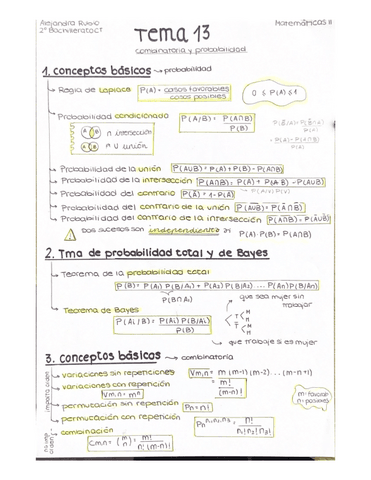 Alejandra Rubio
2º Bachillerato CT
Matemáticas II
TEMA 13
combinatoria y probabilidad
1. conceptos básicos → probabilidad
Regla de Laplace P(A) = casos favorables / casos posibles
0 ≤ P(A) ≤ 1
Probabilidad condicionada P(A/B) = P(A∩B) / P(B)
∩ intersección
∪ unión
Probabilidad de la unión P(A∪B) = P(A) + P(B) - P(A∩B)
Probabilidad de la intersección P(A∩B) = P(A) + P(B) - P(A∪B)
Probabilidad del contrario P(Ā) = 1 - P(A)
Probabilidad del contrario de la unión
Probabilidad del contrario de la intersección
Dos sucesos son independientes si P(A)·P(B) = P(A∩B)
2. Tma de probabilidad total y de Bayes
Teorema de la probabilidad total
P(B) = P(A₁) P(B/A₁) + P(A₂) P(B/A₂) ... P(An) P(B/An)
P(B∩A₁)
que sea mujer sin trabajar
Teorema de Bayes
P(Ai/B) = P(Ai) P(B/Ai) / P(B)
que trabaje si es mujer
3. conceptos básicos → combinatoria
importa orden
variaciones sin repeticiones Vm,n = m (m-1)(m-2) ... (m-n+1)
= m! / (m-n)!
variaciones con repetición
Vm,n = mⁿ
permutación sin repetición Pn = n!
permutación con repetición n! / n₁! n₂! n₃!
combinación
Cm,n = (m n) = m! / n! (m-n)!